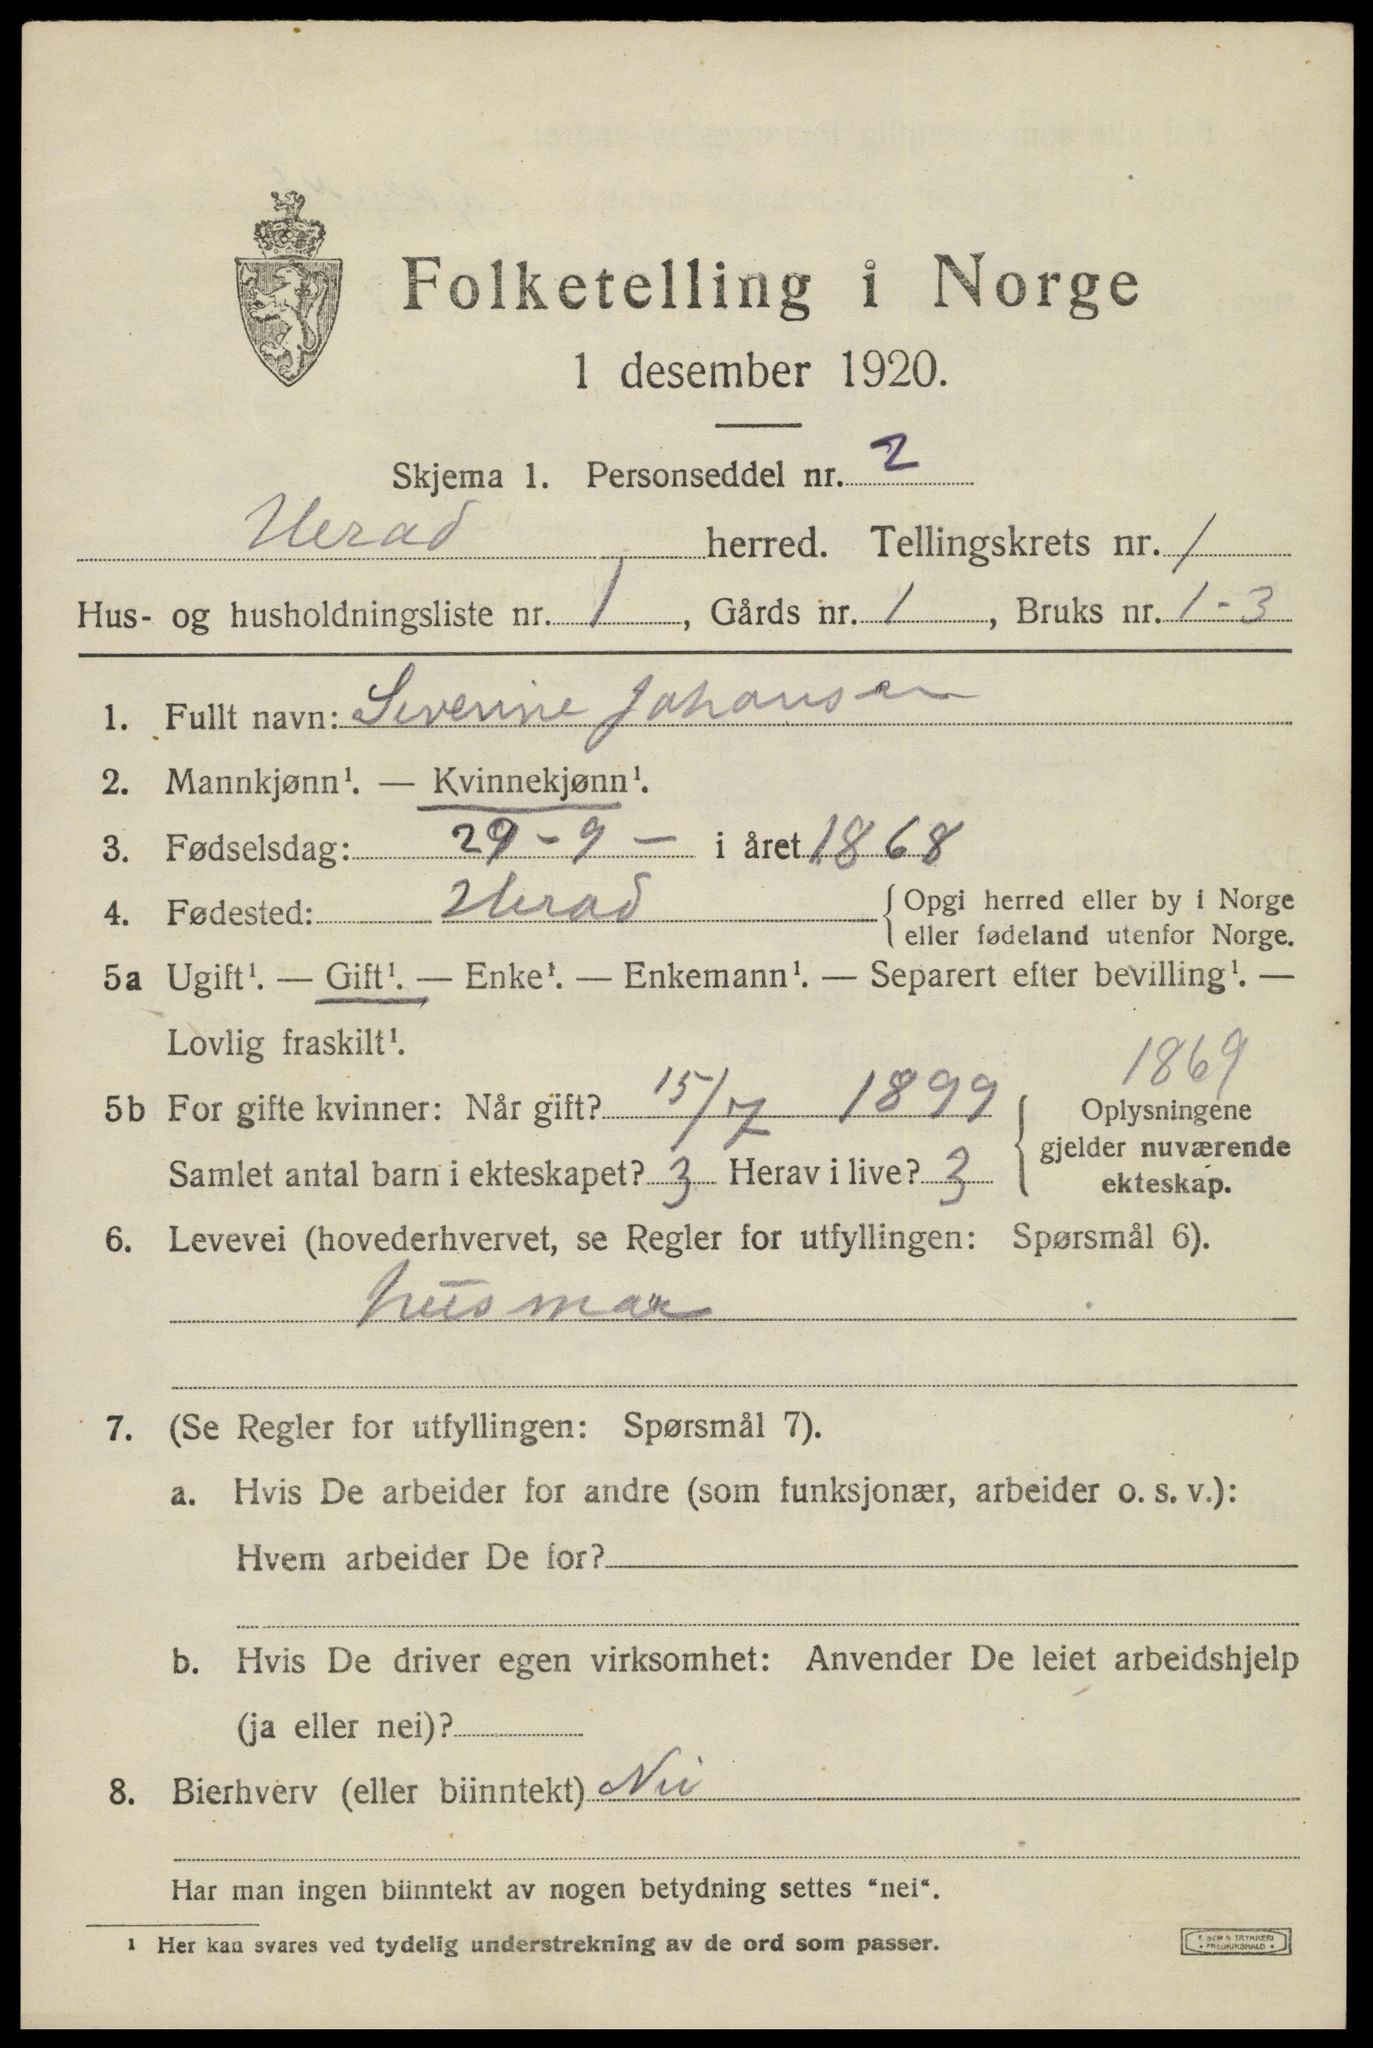 Folketelling i Norge
1 desember 1920.
Skjema 1. Personseddel nr. 2
Herad herred. Tellingskrets nr. 1
Hus- og husholdningsliste nr. 1, Gårds nr. 1, Bruks nr. 1-3
1. Fullt navn: Severine Johansen
2. Mannkjønn¹. — Kvinnekjønn¹.
3. Fødselsdag: 29 - 9 - i året 1868
4. Fødested: Herad {Opgi herred eller by i Norge
eller fødeland utenfor Norge.
5a Ugift¹. — Gift¹. — Enke¹. — Enkemann¹. — Separert efter bevilling¹. —
Lovlig fraskilt¹.
1869
5b For gifte kvinner: Når gift? 15/7 1899 { Oplysningene
gjelder nuværende
Samlet antal barn i ekteskapet? 3 Herav i live? 3 ekteskap.
6. Levevei (hovederhvervet, se Regler for utfyllingen: Spørsmål 6).
husmor
7. (Se Regler for utfyllingen: Spørsmål 7).
a. Hvis De arbeider for andre (som funksjonær, arbeider o. s. v.):
Hvem arbeider De for?
b. Hvis De driver egen virksomhet: Anvender De leiet arbeidshjelp
(ja eller nei)?
8. Bierhverv (eller biinntekt) Nei
Har man ingen biinntekt av nogen betydning settes "nei".
¹ Her kan svares ved tydelig understrekning av de ord som passer.
TRYKKERI
FREDRIKSHALD